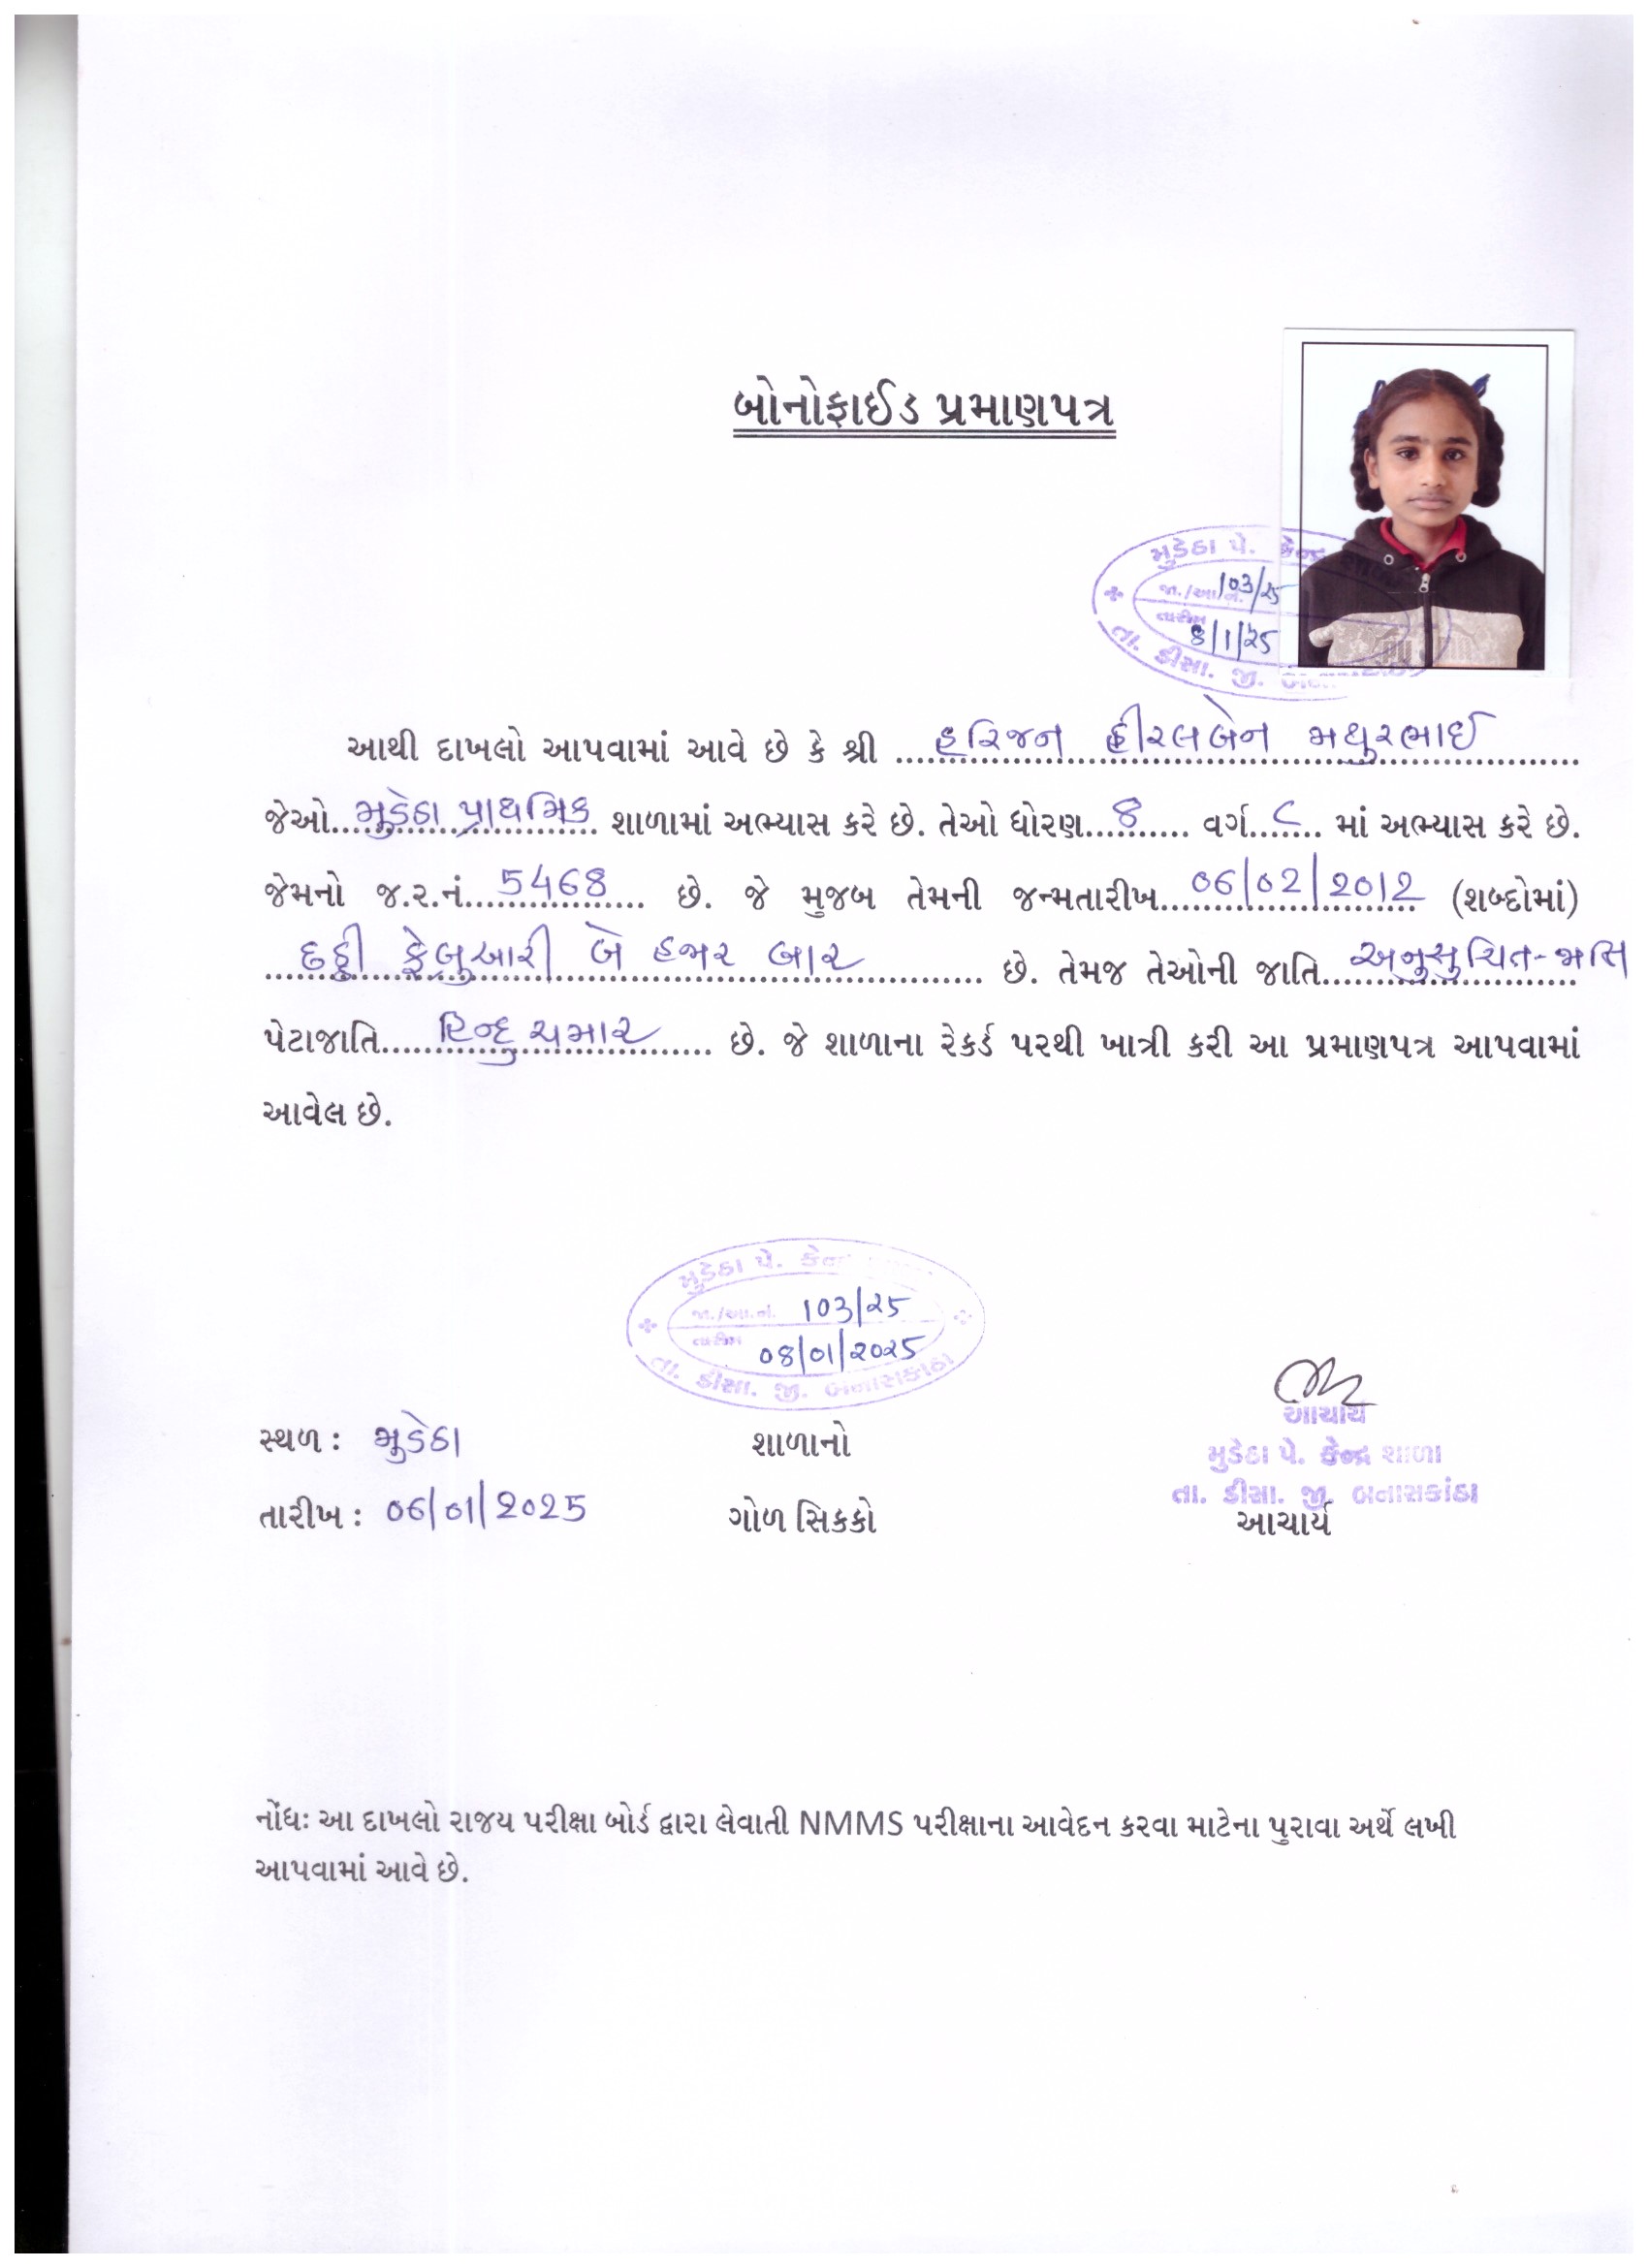 બોનોફાઈડ પ્રમાણપત્ર
મુડેઠા પે. કેન્દ્ર
જા./આ.નં. 103/25
તારીખ 8/1/25
તા. ડીસા. જી.
આથી દાખલો આપવામાં આવે છે કે શ્રી હરિજન હીરલબેન મથુરભાઈ
જેઓ મુડેઠા પ્રાથમિક શાળામાં અભ્યાસ કરે છે. તેઓ ધોરણ 8 વર્ગ C માં અભ્યાસ કરે છે.
જેમનો જ.ર.નં. 5468 છે. જે મુજબ તેમની જન્મતારીખ 06/02/2012 (શબ્દોમાં)
છઠ્ઠી ફેબ્રુઆરી બે હજાર બાર છે. તેમજ તેઓની જાતિ અનુસુચિત-જાતિ
પેટાજાતિ હિન્દુ ચમાર છે. જે શાળાના રેકર્ડ પરથી ખાત્રી કરી આ પ્રમાણપત્ર આપવામાં
આવેલ છે.
મુડેઠા પે.
જા./આ.નં. 103/25
તારીખ 08/01/2025
તા. ડીસા. જી. બનાસકાંઠા
આચાર્ય
મુડેઠા પે. કેન્દ્ર શાળા
તા. ડીસા. જી. બનાસકાંઠા
સ્થળ : મુડેઠા શાળાનો
તારીખ : 06/01/2025 ગોળ સિકકો આચાર્ય
નોંધઃ આ દાખલો રાજય પરીક્ષા બોર્ડ દ્વારા લેવાતી NMMS પરીક્ષાના આવેદન કરવા માટેના પુરાવા અર્થે લખી
આપવામાં આવે છે.